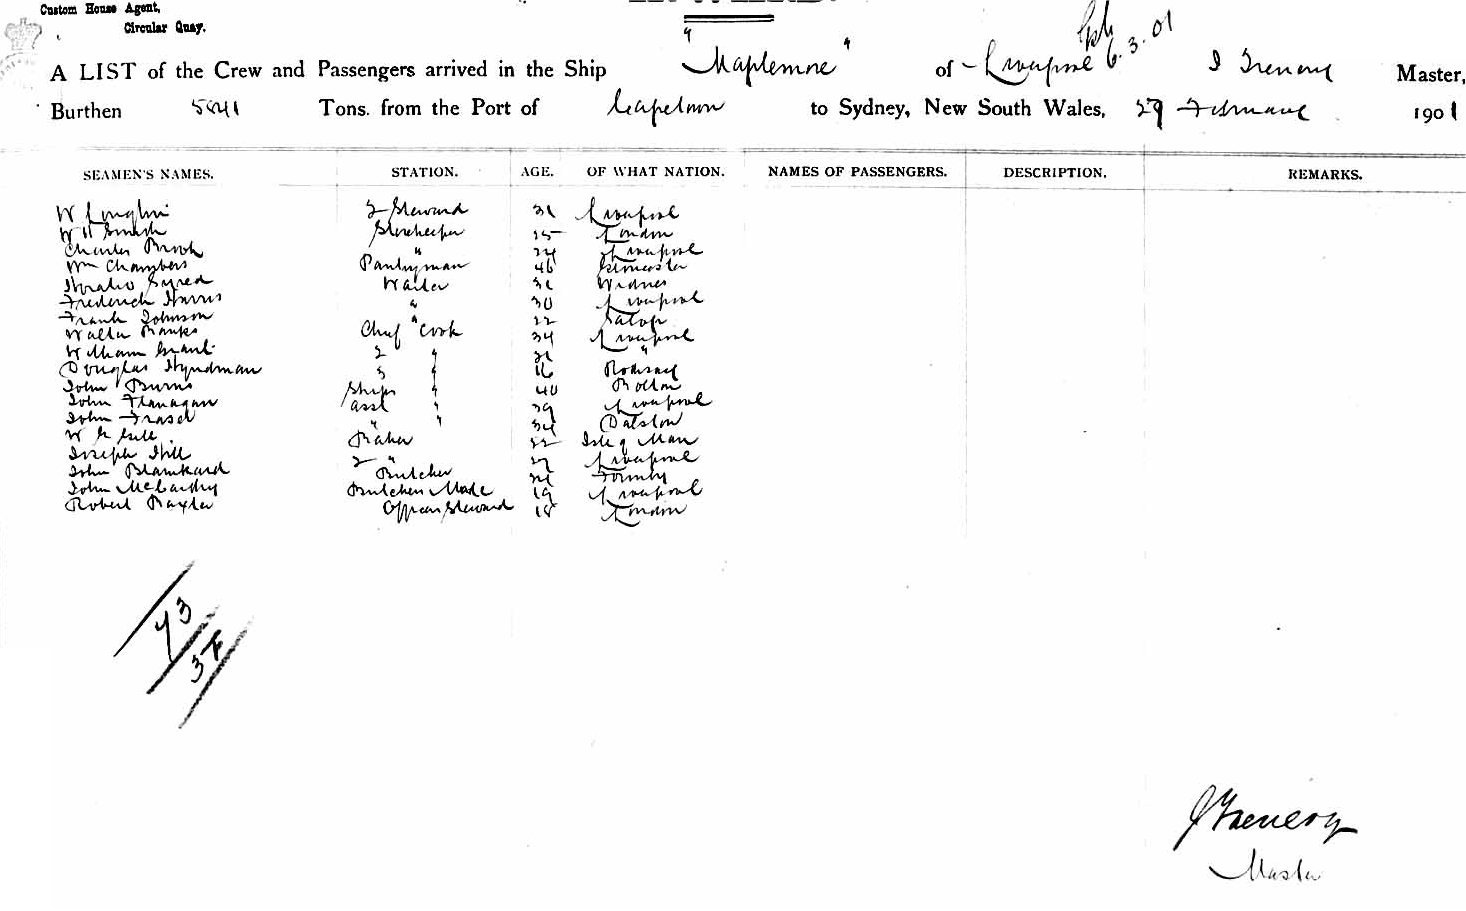 Custom House Agent,
Circular Quay.
6.3.01
A LIST of the Crew and Passengers arrived in the Ship "Maplemore" of Liverpool J Trenery Master,
Burthen Tons. from the Port of Capetown to Sydney, New South Wales, 1901
SEAMEN'S NAMES. STATION. AGE. OF WHAT NATION. NAMES OF PASSENGERS. DESCRIPTION. REMARKS.
W 2 Steward Liverpool
W H Smith Storekeeper London
Charles Brook " 24 Liverpool
Wm Chambers Pantryman 46 Gloucester
Horatio Waiter Widnes
Frederick Harris " 30 Liverpool
Frank Johnson " 22 Salop
Walter Banks Chief Cook 34 Liverpool
William Grant 2 " "
Douglas Hyndman 3 " 16 Rothsay
John Burns Ships " 40 Bolton
John Flanagan asst " 39 Liverpool
John Fraser " " 34 Dalston
W Baker 22 Isle of Man
Joseph Hill 2 " 27 Liverpool
John Butcher Formby
John McCarthy Butchers Mate 19 Liverpool
Robert Baxter Officers Steward 18 London
J Trenery
Master